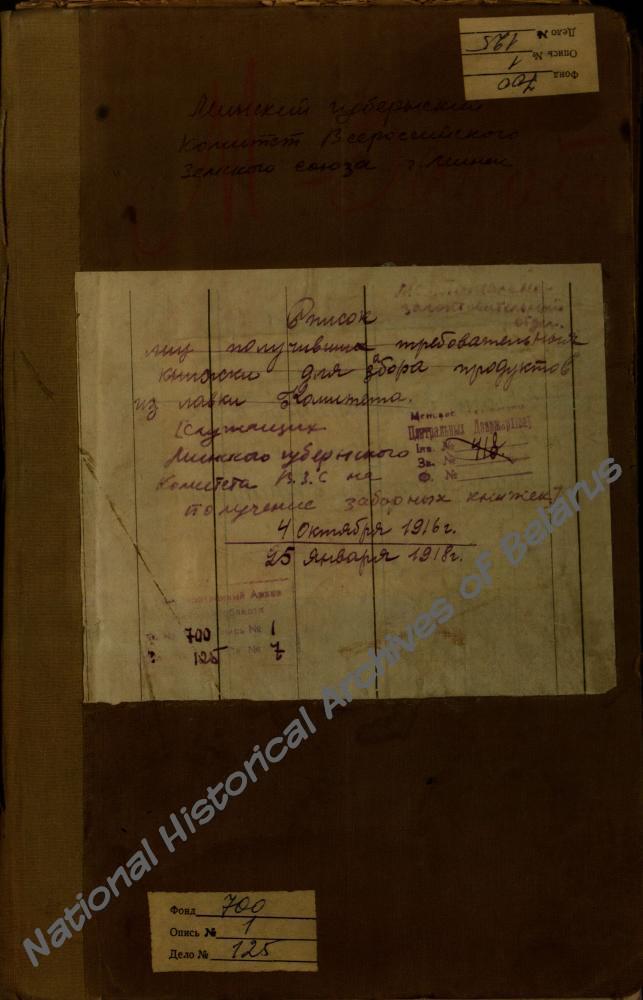 Дело № 125
Опись № 1
Фонд 700
Минский губернский
Комитет Всероссийского
Земского союза г. Минск
заготовительный
отдел.
Список
лиц получивших требовательныя
книжки для забора продуктов
из лавки Комитета.
[Служащих
Минского губернского
Комитета В.З.С на
получение заборных книжек]
4 октября 1916 г.
25 января 1918 г.
Центральных
Инв. №
Зв. № 418
Ф. №
Архив
№ 700 Опись № 1
125 № 7
National Historical Archives of Belarus
Фонд 700
Опись № 1
Дело № 125